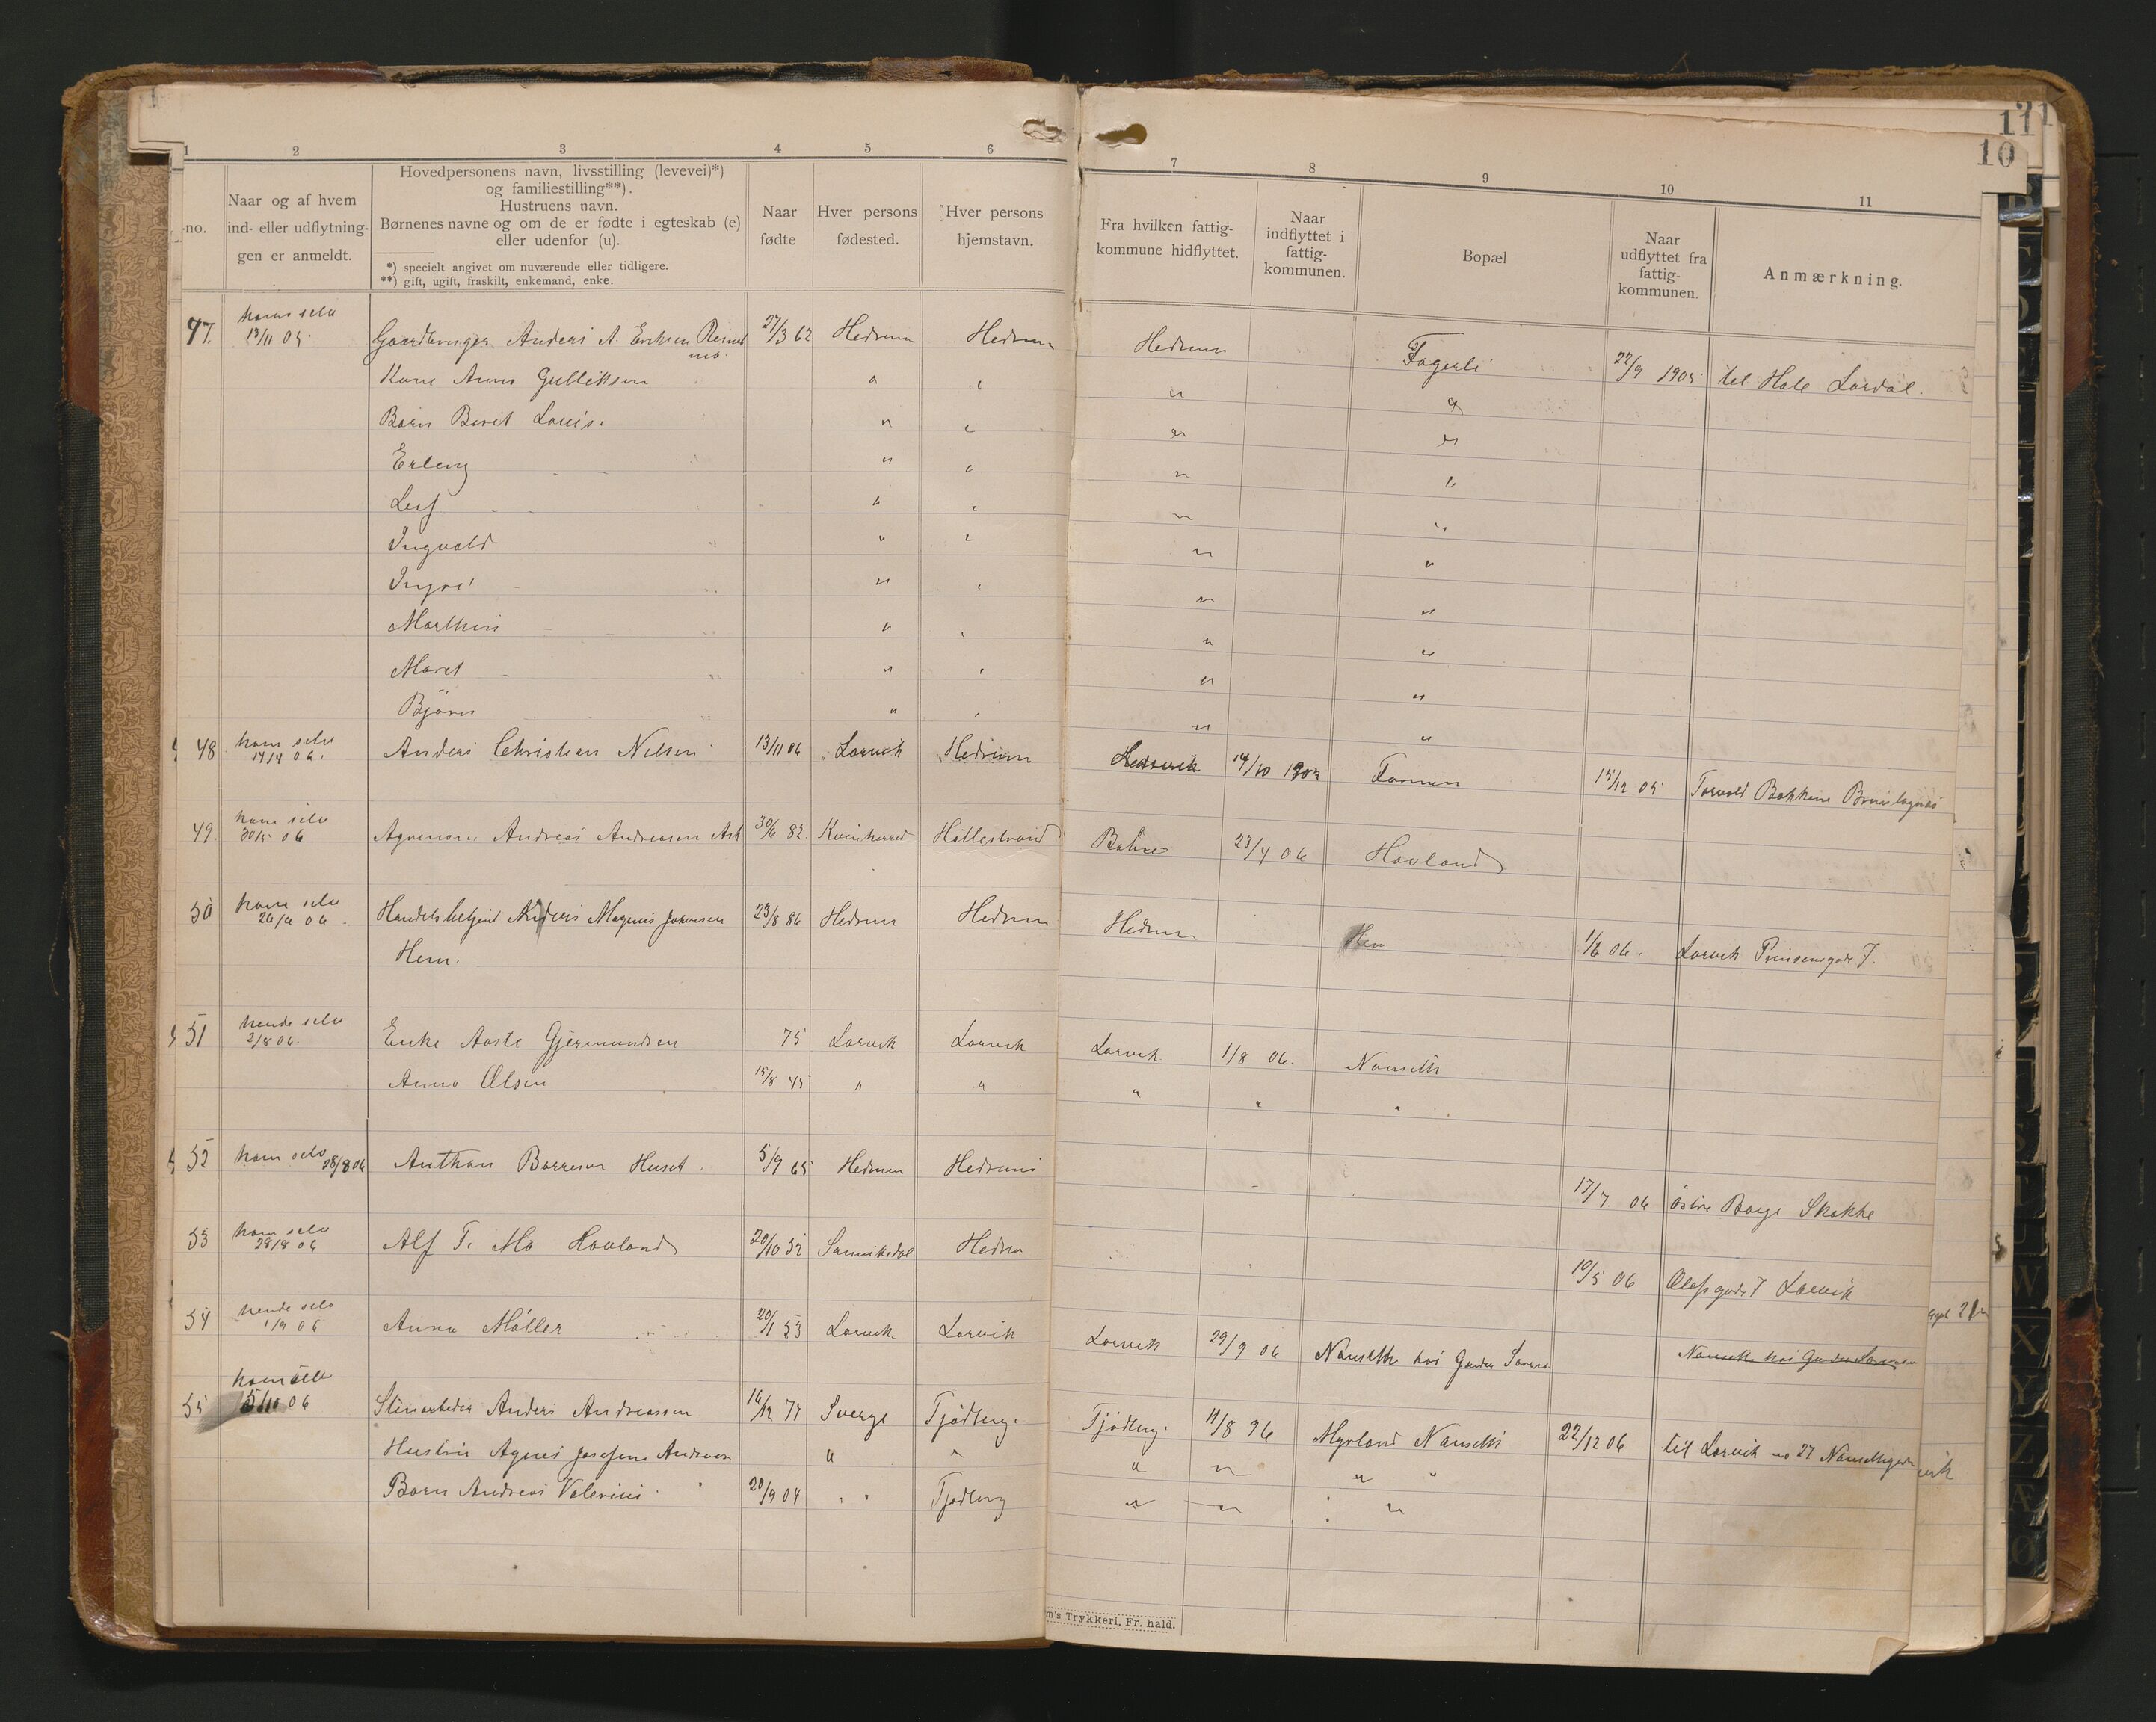 11
10
1 2 3 4 5 6 7 8 9 10 11
no.
Naar og af hvem
ind- eller udflytning-
gen er anmeldt.
Hovedpersonens navn, livsstilling (levevei)*)
og familiestilling**).
Hustruens navn.
Børnenes navne og om de er fødte i egteskab (e)
eller udenfor (u).
*) specielt angivet om nuværende eller tidligere.
**) gift, ugift, fraskilt, enkemand, enke.
Naar
fødte
Hver persons
fødested.
Hver persons
hjemstavn.
Fra hvilken fattig-
kommune hidflyttet.
Naar
indflyttet i
fattig-
kommunen.
Bopæl
Naar
udflyttet fra
fattig-
kommunen.
Anmærkning.
ham selv
47. 13/11 05. Gaardbruger Anders A. Eriksen 27/3 62 Hedrum Hedrum Hedrum Fagerli 22/9 1905 til Hole Lardal.
Kone Anna Gulliksen " " " "
Barn Berit Louise " " " "
Erling " " " "
Leif " " " "
Ingvald " " " "
" " " "
Marthin " " " "
Maret " " " "
Bjørn " " " "
48 ham selv Anders Christian Nilsen 13/11 06 Larvik Hedrum 14/10 1905 Farmen 15/12 05 Torvald Bakkene Brunlagnes
14/4 06.
49. ham selv Agronom Andreas Andreassen Ask 30/6 82 Kvinherred Holestrand 23/4 06 Hovland
30/5 06
50 ham selv Handelsbetjent Anders Magnus Johansen 23/8 86 Hedrum Hedrum Hedrum Hem 1/6 06. Larvik Prinsensgade 7.
26/6 06.
Hem.
51 hende selv Enke Aaste Gjermundsen 75 Larvik Larvik Larvik 1/8 06. Nanseth
2/8 06.
Anna Olsen 15/8 45 " " " " "
52 ham selv 08/8 06 Anthon Borresen Huset 5/9 65 Hedrum Hedrum 17/7 06 østre Borge Skokke
53 ham selv Alf T. Mo Hovland 20/10 52 Sannikedal Hedrum 10/5 06 Olafsgade 7 Larvik
28/8 06
54 hende selv Anna Møller 20/1 53 Larvik Larvik Larvik 29/9 06 Nanseth hos Gunder Nanseth hos Gunder
1/9 06
ham selv
55 5/11 06 Stenarbeider Anders Andreassen 16/12 77 Sverge Tjødling Tjødling 11/8 96 Myrland Nanseth 22/12 06 til Larvik no 27 Nansethgade
Hustru Agnes Josefine Andreasen " " " " " "
Barn Andreas Valerius 20/9 04 " " Tjødling " " " "
m's Trykkeri, Fr. hald.